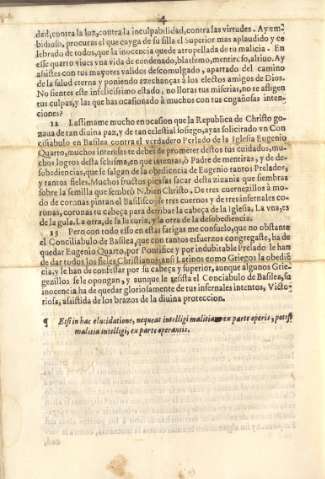 4
dad, contra la luz, contra la inculpabilidad, contra las virtudes. Ay em-
bidioso, procuras el que cayga de su silla el Superior mas aplaudido y ce
lebrado de todos, que la inocencia quede atropellada de tu malicia. En
esse quarto viues vna vida de condenado, blasfemo, mentiroso, aliuo. Ay
assistes con tus mayores validos descomulgado, apartado del camino
de la salud eterna y poniendo azechanças à los electos amigos de Dios.
No sientes este infelicissimo estado, no lloras tus miserias, no te afligen
tus culpas, y las que has ocasionado à muchos con tus engañosas inten-
ciones?
12 Lastimame mucho en ocasion que la Republica de Christo go-
zaua de tan diuina paz, y de tan celestial sosiego, ayas solicitado vn Con
ciliabulo en Basilea contra el verdadero Perlado de la Iglesia Eugenio
Quarto, muchos intereses te debes de prometer destos tus cuidados, mu-
chos logros desta schisma, en que intentas, ò Padre de mentiras, y de de-
sobediencias, que se salgan de la obediencia de Eugenio tantos Perlados,
y tantos fieles. Muchos frutos piensas sacar desta zizania que siembras
sobre la semilla que sembrò N. bien Christo. De tres cuernezillos à mo-
do de coronas pintan el Basilisco, de tres cuernos y de tres infernales co-
ronas, coronas tu cabeça para derribar la cabeça de la Iglesia. La vna, es
de la gula. La otra, de la luxuria, y la otra de la desobediencia.
13 Pero con todo esso en estas fatigas me consuelo, que no obstante
el Conciliabulo de Basilea, que con tantos esfuerços congregaste, ha de
quedar Eugenio Quarto, por Pontifice y por indubitable Perlado le han
de dar todos los fieles Christianos, assi Latinos como Griegos la obedie-
cia, y le han de confessar por su cabeça y superior, aunque algunos Grie-
gezillos se le opongan, y aunque le resista el Conciliabulo de Basilea, su
inocencia ha de quedar gloriosamente de tus infernales intentos, Victo-
riosa, assistida de los brazos de la diuina proteccion.
¶ Etsi in hac elucidatione, nequeat intelligi malitia ex parte operis, potest
malitia intelligi, ex parte operantis.